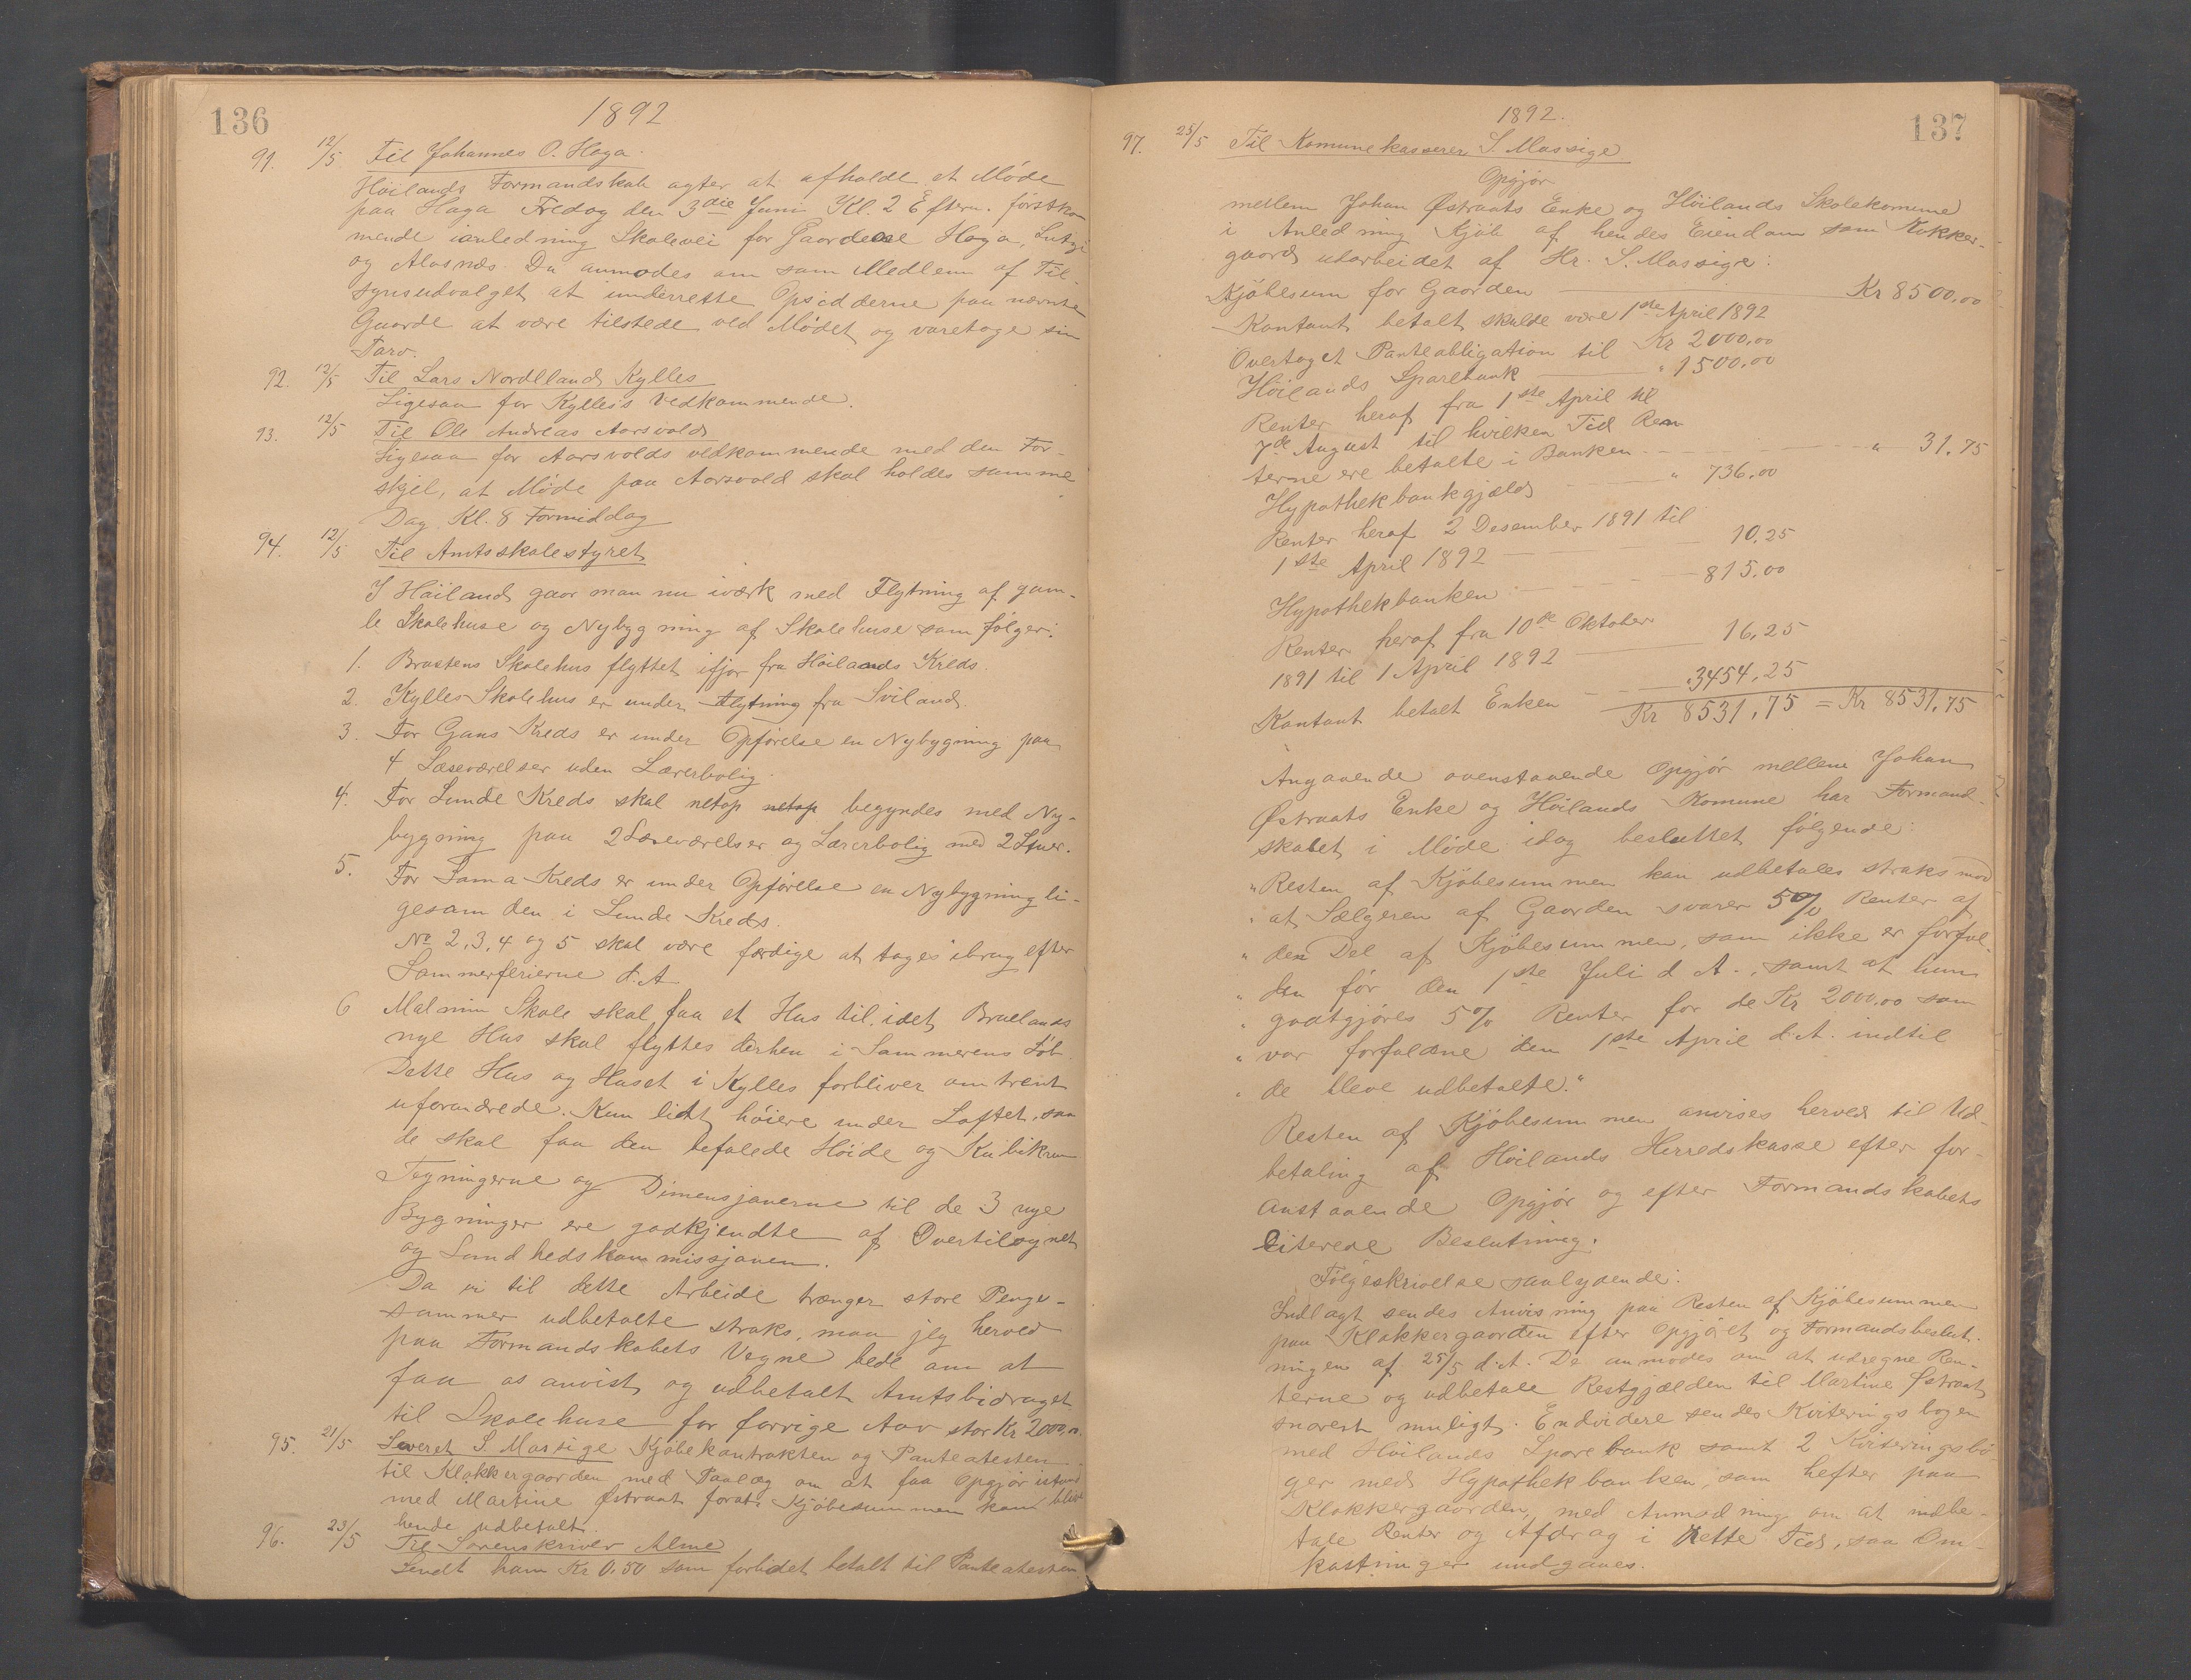 136
1892
91. 12/5 Til Johannes O. Haga.
Höilands Formandskab agter at afholde et Møde
paa Haga Fredag den 3die Juni Kl. 2 Efterm. førstkom
mende ianledning Skolevei for Gaardene Haga, Lutsi
og Alvsnæs. Du anmodes om som Medlem af Til-
synsudvalget at underrette Opsidderne paa nævnte
Gaarde at være tilstede ved Mødet og varetage sin
Tarv.
92. 12/5 Til Lars Nordland Kylles
Ligesaa for Kylles's Vedkommende.
93. 12/5 Til Ole Andreas Aarsvold
Ligesaa for Aarsvolds vedkommende med den For-
skjel, at Møde paa Aarsvold skal holdes samme
Dag Kl. 8 Formiddag
94. 12/5 Til Amtsskolestyret
I Höiland gaar man nu iværk med Flytning af gam-
le Skolehuse og Nybygning af Skolehuse som følger:
1. Brastens Skolehus flyttet ifjor fra Höilands Kreds.
2. Kylles Skolehus er under Flytning fra Sviland.
3. For Gans Kreds er under Opførelse en Nybygning paa
4 Læseværelser uden Lærerbolig.
4. For Lunde Kreds skal netop netop begyndes med Ny-
bygning paa 2 Læseværelser og Lærerbolig med 2 Stuer.
5. For Foma Kreds er under Opførelse en Nybygning li-
gesom den i Lunde Kreds.
No 2, 3, 4 og 5 skal være færdige at tages ibrug efter
Sommerferierne d. A
6 Malmin Skole skal faa et Hus til, idet Bruelands
nye Hus skal flyttes derhen i Sommerens Løb
Dette Hus og Huset i Kylles forbliver omtrent
uforandrede. Kun lidt høiere under Loftet, saa
de skal faa den befalede Høide og Kubikrum
Tegningerne og Dimensjonerne til de 3 nye
Bygninger ere godkjendte af Overtilsynet
og Sundhedskommissjonen.
Da vi til dette Arbeide trænger store Penge-
summer udbetalte straks, maa jeg herved
paa Formandskabets Vegne bede om at
faa os anvist og udbetalt Amtsbidraget
til Skolehuse for forrige Aar stor Kr 2000,00.
95. 21/5 Leveret S. Massige Kjøbekontrakten og Panteatesten
til Klokkergaarden med Paalæg om at faa Opgjör istand
med Martine Østraat forat Kjøbesummen kan blive
hende udbetalt.
96. 23/5 Til Sorenskriver Alme
Sendt ham Kr 0.50 som forlodet betalt til Panteatesten
137
1892.
97. 25/5 Til Komunekasserer S. Massige
Opgjör
mellem Johan Østraats Enke og Höilands Skolekomune
i Anledning Kjøb af hendes Eiendom som Klokker-
gaard utarbeidet af Hr. S. Massige:
Kjöbesum for Gaarden Kr 8500,00
Kontant betalt skulde være 1ste April 1892
Kr 2000,00
Overtaget Panteobligation til
Höilands Sparebank " 1500,00
Renter heraf fra 1ste April til
7de August til hvilken Tid Ren
terne ere betalte i Banken " 31.75
Hypothekbankgjæld " 736,00
Renter heraf 2 Desember 1891 til
1ste April 1892 10.25
Hypothekbanken 815.00
Renter heraf fra 10de Oktober
1891 til 1 April 1892 16,25
Kontant betalt Enken 3454,25
Kr 8531,75 = Kr 8531,75
Angaaende ovenstaaende Opgjör mellem Johan
Østraats Enke og Höilands Komune har Formand-
skabet i Møde idag besluttet følgende:
" Resten af Kjøbesummen kan udbetales straks mod
" at Sælgeren af Gaarden svarer 5% Renter af
" den Del af Kjøbesummen, som ikke er forfal-
" den før den 1ste Juli d A., samt at hun
" godtgjøres 5% Renter for de Kr 2000,00 som
" var forfaldne den 1ste April d.A. indtil
" de bleve udbetalte."
Resten af Kjøbesummen anvises herved til Ud-
betaling af Höilands Herredskasse efter for-
anstaaende Opgjör og efter Formandskabets
Citerede Beslutning.
Følgeskrivelse saalydende:
Indlagt sendes Anvisning paa Resten af Kjøbesummen
paa Klokkergaarden efter Opgjöret og Formandsbeslut-
ningen af 25/5 d.A. De anmodes om at udregne Ren-
terne og udbetale Restgjælden til Martine Østraat
snarest muligt. Endvidere sendes Kviteringsbogen
med Höilands Sparebank samt 2 Kviteringsbö-
ger med Hypothekbanken, som hefter paa
Klokkergaarden, med Anmodning om at indbe-
tale Renter og Afdrag i Rette Tid, saa Om-
kostninger undgaaes.